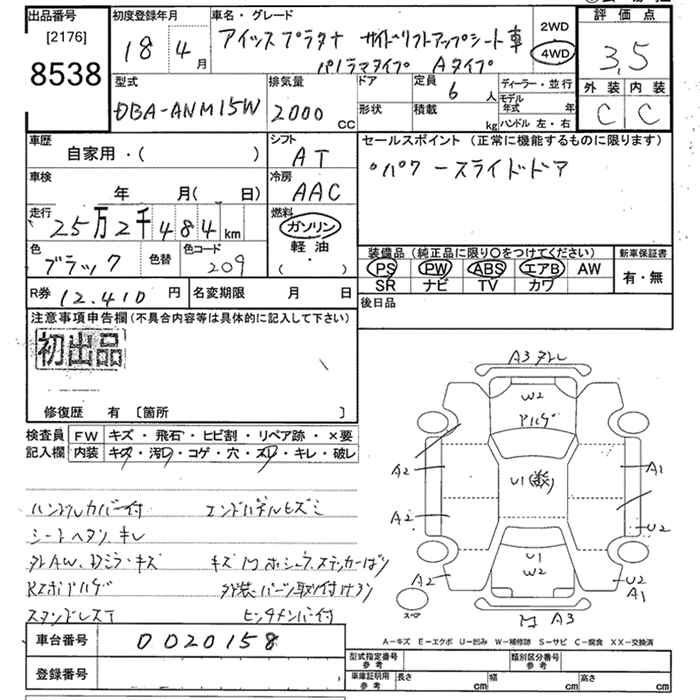 出品番号
[2176]
8538
初度登録年月
18 4月
車名・グレード
アイシス プラタナ サイドリフトアップシート車
パノラマタイプ Aタイプ
2WD
4WD
評価点
3.5
外装 内装
C C
型式
DBA-ANM15W
排気量
2000cc
ドア
形状
定員
6人
積載
kg
ディーラー・並行
モデル年式 年
ハンドル 左・右
車歴
自家用・( )
シフト
AT
セールスポイント (正常に機能するものに限ります)
パワースライドドア
車検
年 月( 日)
冷房
AAC
走行
25万2千484km
燃料
ガソリン
軽油
( ・ )
色
ブラック
色替
色コード
209
装備品 (純正品に限り○をつけてください)
PS PW ABS エアB AW
SR ナビ TV カワ
新車保証書
有・無
R券 12,410円
名変期限 月 日
後日品
注意事項申告欄(不具合内容等は具体的に記入して下さい)
初出品
修復歴 有 [箇所 ]
検査員記入欄
FW キズ・飛石・ヒビ割・リペア跡・×要
内装 キズ・汚レ・コゲ・穴・スレ・キレ・破レ
ハンドルカバー付 エンドパネルヒズミ
シートヘタリ キレ
外AW、Dミラーキズ
外装パーツ取付けアリ
スタッドレスT
A3
W2
A2
U1
A1
A2
U2
U1
W2
A2
U2
A1
スペア
A3
A-キズ E-エクボ U-凹み W-補修跡 S-サビ C-腐食 XX-交換済
車台番号
0020158
登録番号
型式指定番号
参考
類別区分番号
参考
車庫証明用
参考
長さ cm
幅 cm
高さ cm